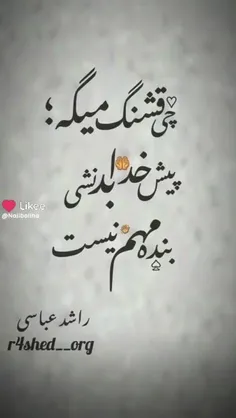 چی قشنگ میگه؛
پیش خدا بد نشی
بنده مهم نیست
Likee
راشد عباسی
r4shed__org